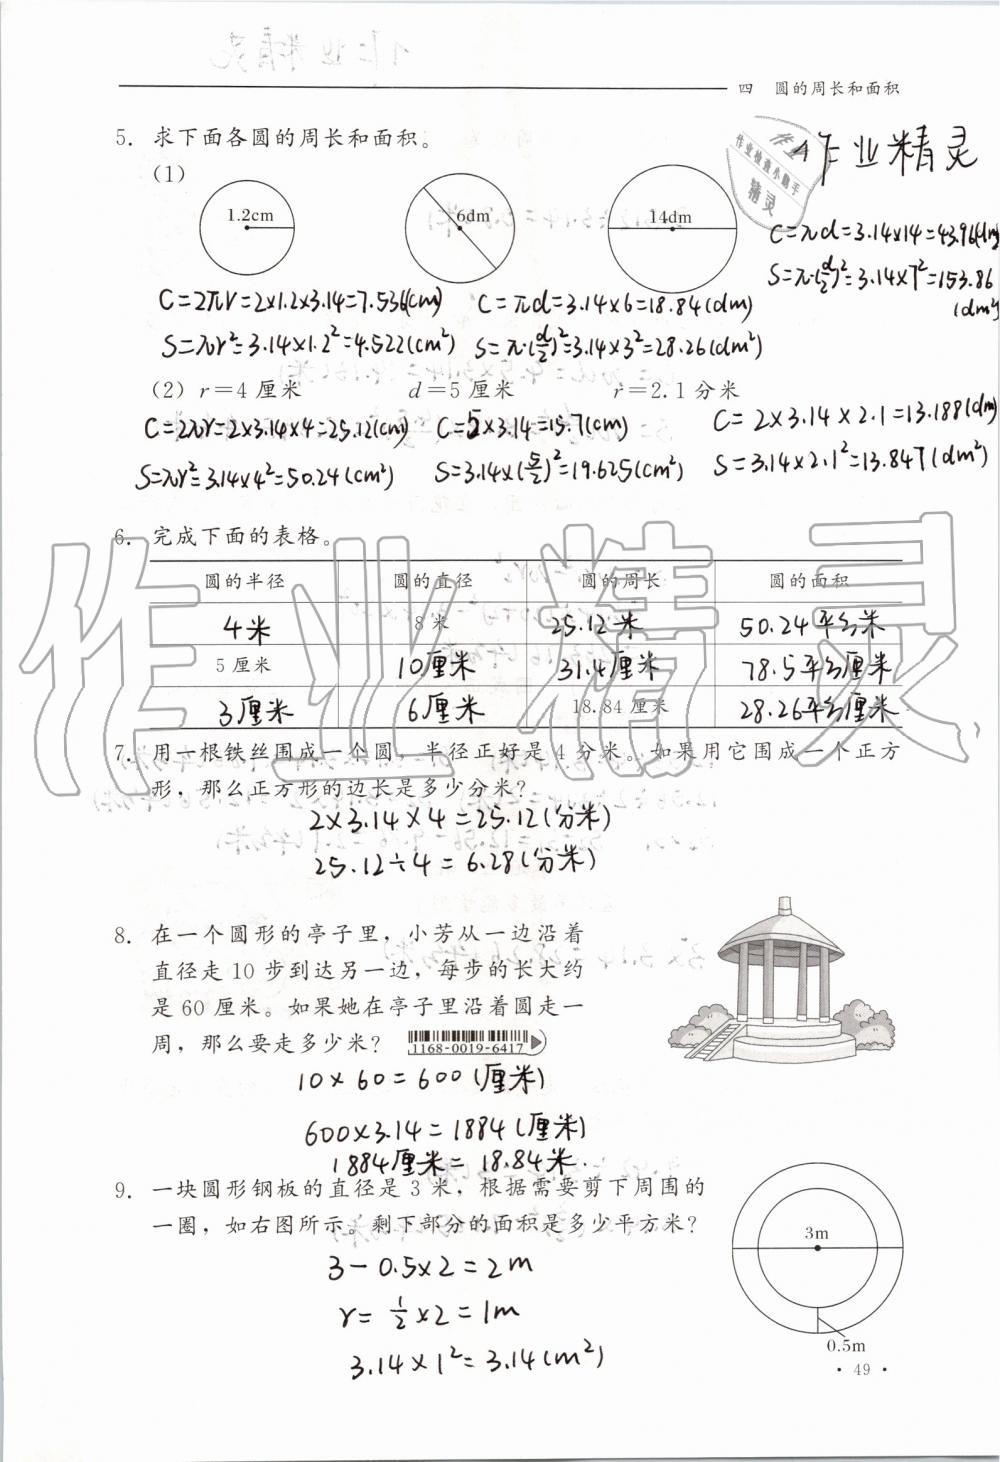 四 圆的周长和面积
作业精灵
作业检查小助手
精灵
5. 求下面各圆的周长和面积。
(1)
1.2cm
6dm
14dm
C=πd=3.14×14=43.96(dm)
S=π·(d/2)²=3.14×7²=153.86
(dm²)
C=2πr=2×1.2×3.14=7.536(cm)
C=πd=3.14×6=18.84(dm)
S=πr²=3.14×1.2²=4.522(cm²)
S=π·(d/2)²=3.14×3²=28.26(dm²)
(2) r=4 厘米 d=5 厘米 r=2.1 分米
C=2πr=2×3.14×4=25.12(cm)
C=5×3.14=15.7(cm)
C=2×3.14×2.1=13.188(dm)
S=πr²=3.14×4²=50.24(cm²)
S=3.14×(5/2)²=19.625(cm²)
S=3.14×2.1²=13.847(dm²)
6. 完成下面的表格。
圆的半径 圆的直径 圆的周长 圆的面积
4米 8米 25.12米 50.24平方米
5厘米 10厘米 31.4厘米 78.5平方厘米
3厘米 6厘米 18.84厘米 28.26平方厘米
作业精灵
7. 用一根铁丝围成一个圆，半径正好是 4 分米。如果用它围成一个正方
形，那么正方形的边长是多少分米?
2×3.14×4=25.12(分米)
25.12÷4=6.28(分米)
8. 在一个圆形的亭子里，小芳从一边沿着
直径走 10 步到达另一边，每步的长大约
是 60 厘米。如果她在亭子里沿着圆走一
周，那么要走多少米?
1168-0019-6417
10×60=600(厘米)
600×3.14=1884(厘米)
1884厘米=18.84米.
9. 一块圆形钢板的直径是 3 米，根据需要剪下周围的
一圈，如右图所示。剩下部分的面积是多少平方米?
3-0.5×2=2m
r=1/2×2=1m
3.14×1²=3.14(m²)
3m
0.5m
· 49 ·